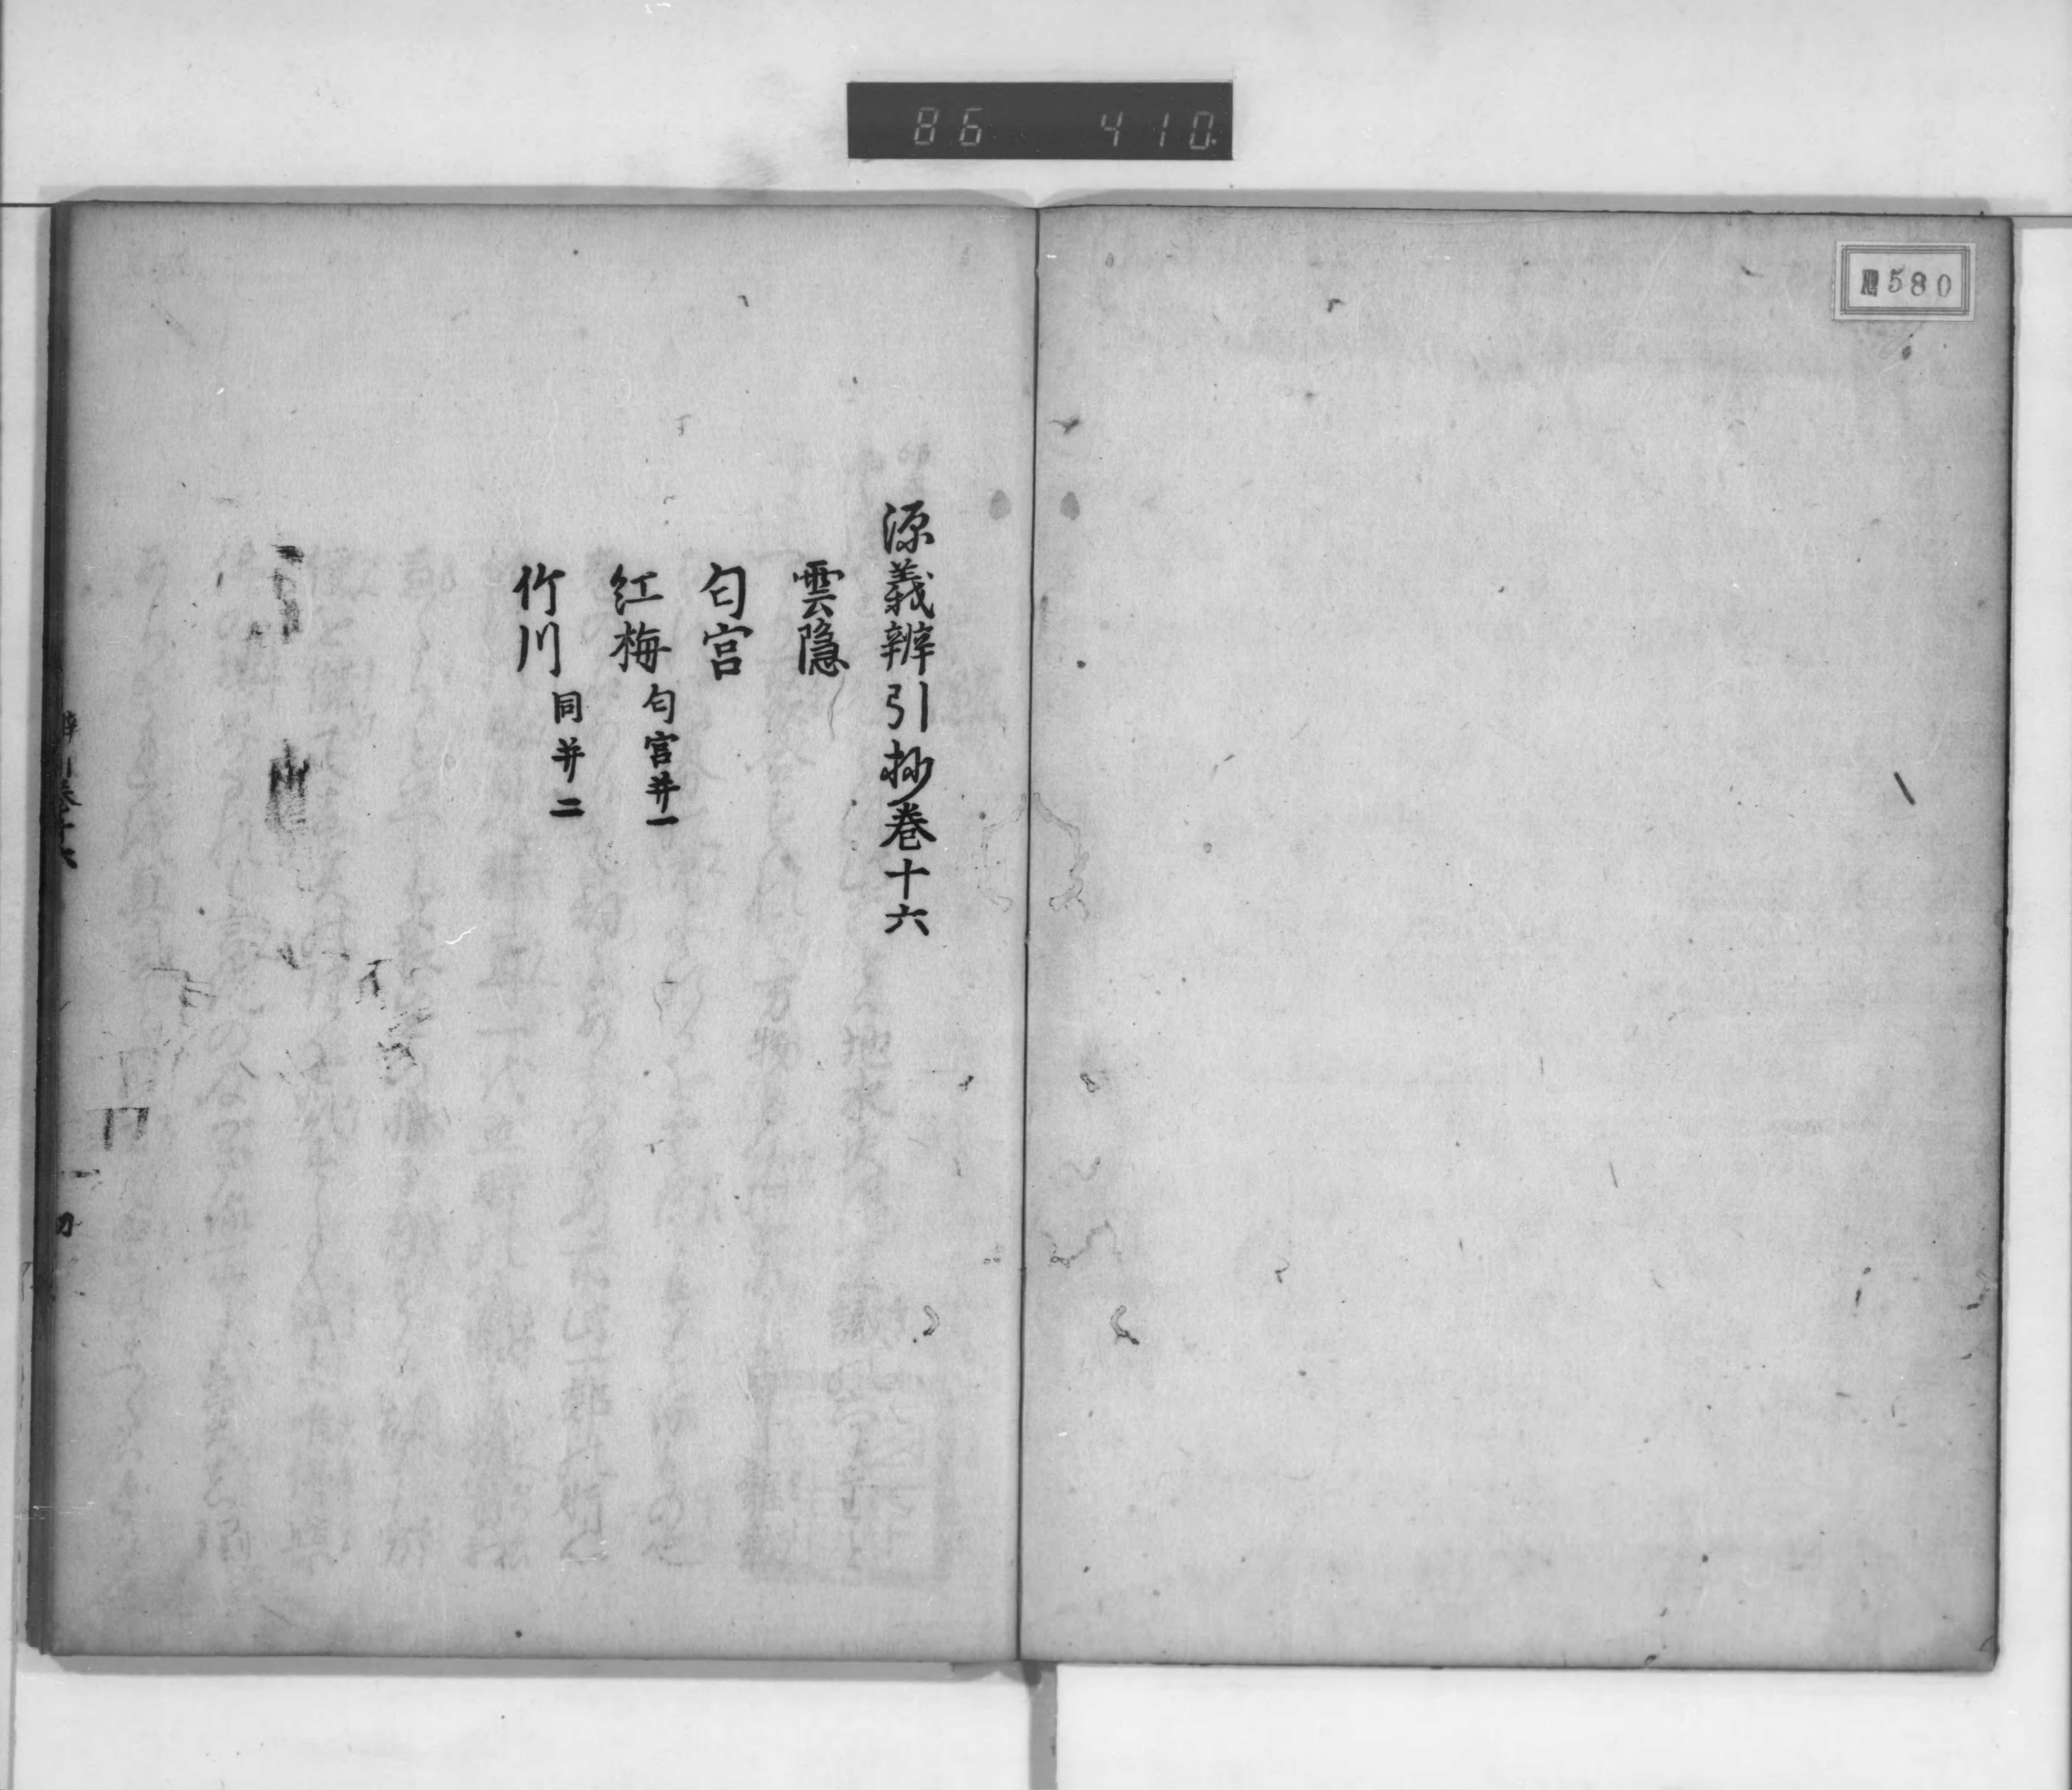 86 410
580
源義辨引抄巻十六
雲隠
匂宮
紅梅 匂宮并一
竹川 同并二